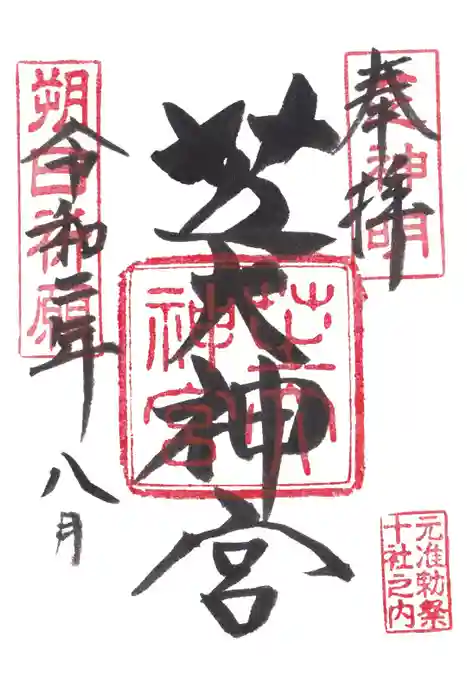 奉拝
神明
芝大神宮
芝大
神宮
令和二年
八月
朔日祈願
元准勅祭
十社之内